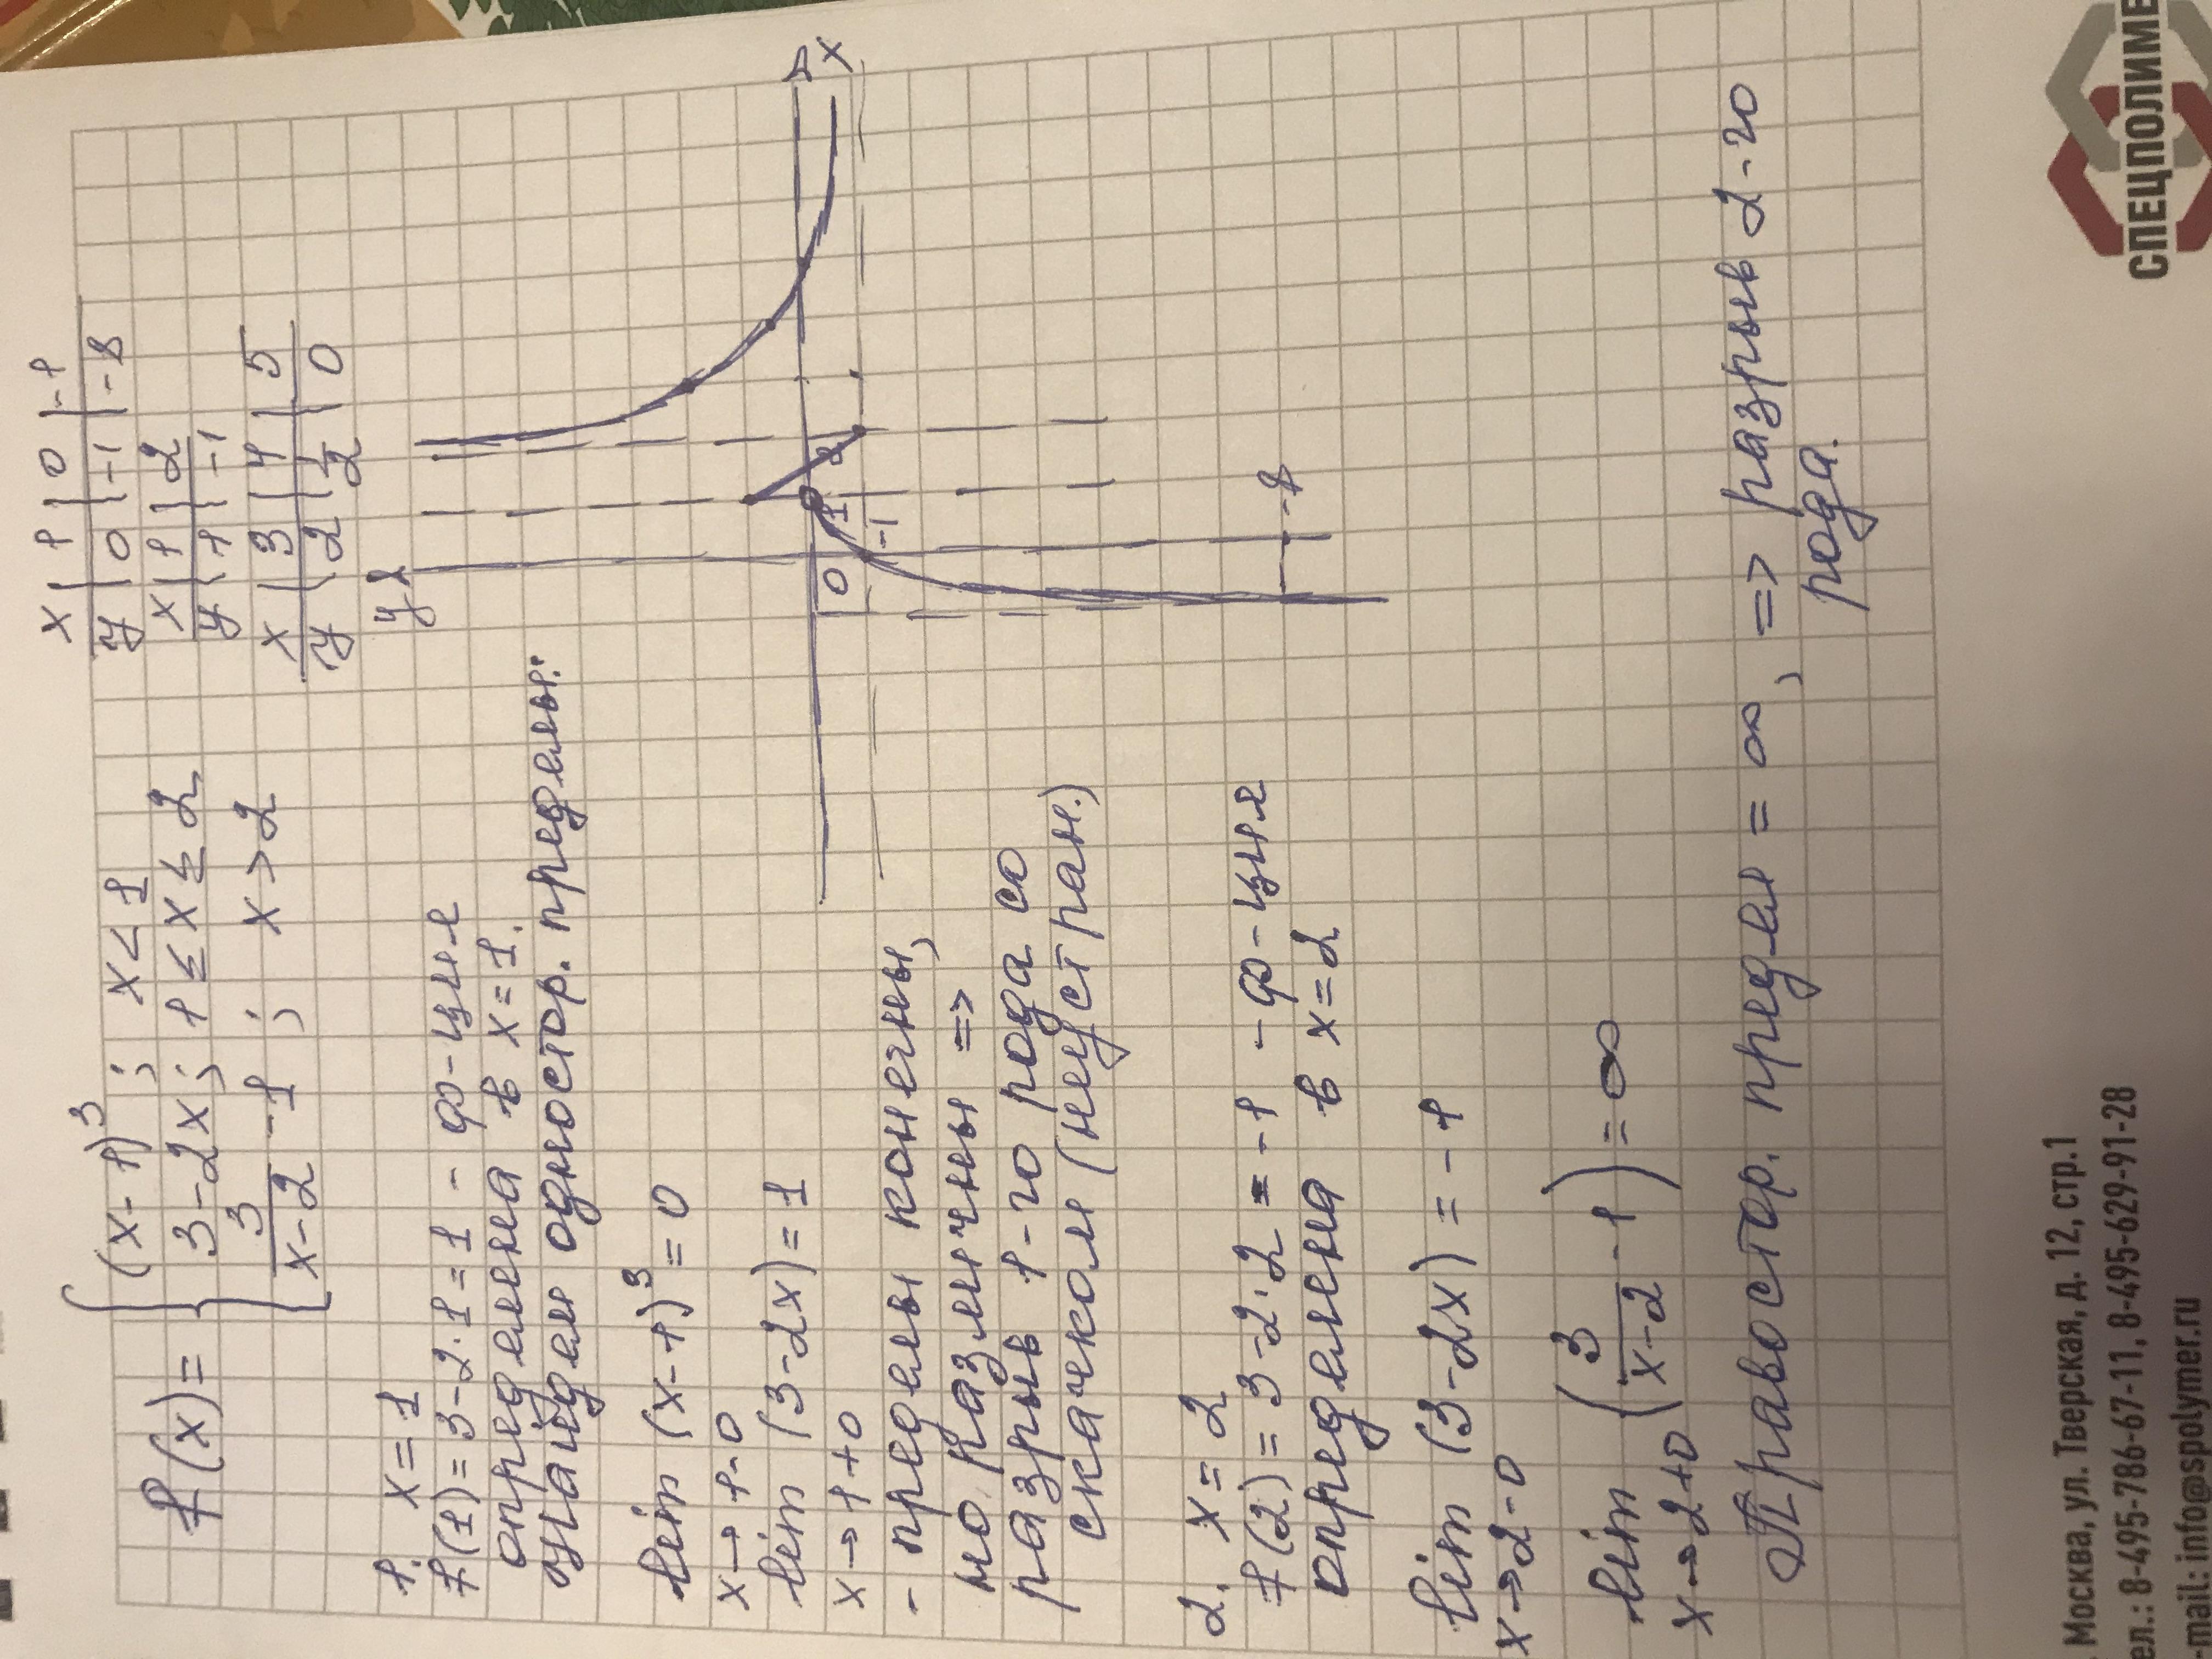 f(x) = { (x-1)³ ; x < 1
3-2x ; 1 ≤ x ≤ 2
3/(x-2) - 1 ; x > 2
x | 1 | 0 | -1
y | 0 | -1 | -8
x | 1 | 2
y | 1 | -1
x | 3 | 4 | 5
y | 2 | 1/2 | 0
1. x = 1
f(1) = 3-2·1 = 1 - ф-ция
определена в x = 1.
Найдем одностор. пределы:
lim (x-1)³ = 0
x→1-0
lim (3-2x) = 1
x→1+0
- пределы конечны,
но различны =>
разрыв 1-го рода со
скачком (неустран.)
y
x
0
1
2
-1
-8
2. x = 2
f(2) = 3-2·2 = -1 - ф-ция
определена в x = 2
lim (3-2x) = -1
x→2-0
lim (3/(x-2) - 1) = ∞
x→2+0
Правостор. предел = ∞, => разрыв 2-го
рода.
СПЕЦПОЛИМЕ
Москва, ул. Тверская, д. 12, стр.1
ел.: 8-495-786-67-11, 8-495-629-91-28
-mail: info@spolymer.ru